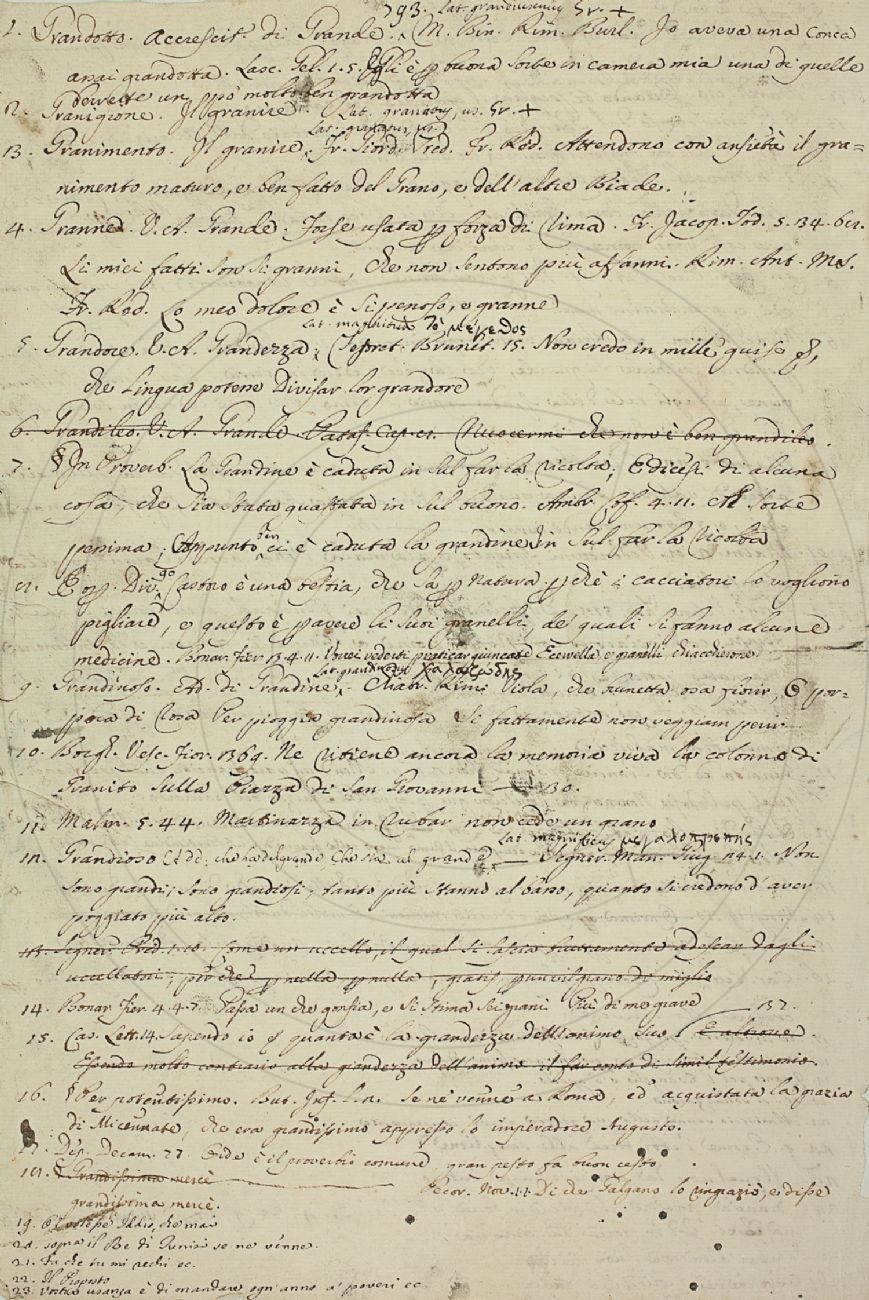 793. Lat. grandiusculus Gr. +
1. Grandotto. Accrescit. di Grande. M. Bin. Rim. Burl. Io aveva una conca
assai grandotta. Lasc. Gel. 1. 5. Egli è p buona sorte in camera mia una di quelle
un pò molto ben grandotta
2. Granigione. Il granire. Lat. Gr. +
Lat.
13. Granimento. Il granire. Fr. Giord. Pred. Fr. Red. Attendono con ansietà il gra=
nimento maturo, e ben fatto del Grano, e dell'altre Biade.
4. Granne. V. A. Grande. Forse usata p forza di Rima. Fr. Jacop. Tod. 5. 34. 61.
Li miei fatti son sì granni, che non sentono più affanni. Rim. Ant. MS.
Fr. Red. Lo meo dolore è sì penoso, e granne
Lat. magnitudo τὸ μέγεθος
5. Grandore. V. A. Grandezza. Tesoret. Brunet. 15. Non credo in mille guise
che lingua potesse divisar lor grandore
6. Grandileo. V. A. Grande Pataf. Cap. che non è ben grandileo.
7. § In Proverb. La Grandine è caduta in sul far la ricolta; E dicesi di alcuna
cosa, che sia stata guastata in sul buono. Ambr. Cof. 4. 11. Ah sorte
pessima; Appunto ben ci è caduta la grandine in sul far la ricolta
Castoro è una bestia, che sa p natura p chè i cacciatori lo vogliono
pigliare, e questo è p avere li suoi granelli, de' quali si fanno alcune
medicine. Bonar. Fier. 3. 4. 11. Vorrei vederti praticar giuncate E cervella, e granelli chiacchierone
Lat. grandinosus χαλαζώδης
9. Grandinoso. Add. di Grandine. Chiabr. Rim. Viola, che brunetta osa fiorir, E por-
pora di rosa Per pioggia grandinosa Sì fattamente non veggiam perir
10. Borgh. Vesc. Fior. 1369. Ne ritiene ancora la memoria viva la colonna di
Granito sulla Piazza di San Giovanni — 130.
11. Malm. 5. 44. Martinazza in rubar non cede un grano
Lat. magnificus μεγαλοπρεπής
12. Grandioso Add. che ha del grande — Segner. Man. Giug. 24. 1. Non
sono grandi; sono grandiosi; tanto più stanno al basso, quanto si credono d'aver
poggiato più alto.
113. Segner. Pred. 1. 10. Come un uccello, il qual si lascia adescar dagli
uccellatori; perchè p nulla p nulla, gratis p un vil grano di miglio
14. Bonar. Fier. 4. 4. 7. Passa un che gonfia, e si stima sei grani Più di me grave 137.
15. Cas. Lett. 14. Sapendo io quanta è la grandezza dell'animo suo. E altrove.
Essendo molto contrario alla grandezza dell'animo il far conto di simil testimonio.
16. § Per potentissimo. But. Inf. 1. 2. Se ne venne a Roma, ed acquistata la grazia
di Micenate, che era grandissimo appresso lo imperadore Augusto.
17. Dep. Decam. 27. Onde è il proverbio comune, gran pesto fa buon cesto
18. § Grandissima mercè
grandissima mercè. Pecor. Nov. 11. Di che Galgano lo ringraziò, e disse
19. Iddio, che mai
20. sopra il Re di Tunisi se ne venne.
21. Fa che tu mi rechi ec.
22. Il Proposto
23. Vostra usanza è di mandare ogn'anno a' poveri ec